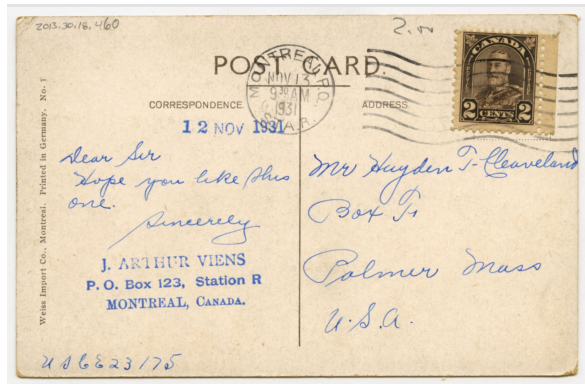 2013.30.18.460
2.00
POST CARD.
MONTREAL, P.Q.
NOV 13
9 30 AM
1931
STA. R.
CANADA
2 CENTS 2
CORRESPONDENCE.
ADDRESS
12 NOV 1931
Dear Sir
Hope you like this
one.
Sincerely
J. ARTHUR VIENS
P. O. Box 123, Station R
MONTREAL, CANADA.
Mr Huyden T. Cleaveland
Box T.
Palmer Mass
U.S.A.
Weiss Import Co., Montreal. Printed in Germany. No. 1